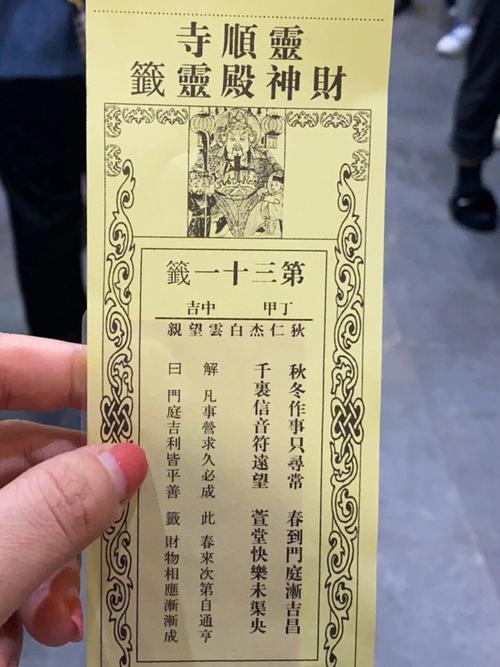 靈順寺
財神殿靈籤
第三十一籤
丁甲 中吉
狄仁杰白雲望親
秋冬作事只尋常 春到門庭漸吉昌
千裏信音符遠望 萱堂快樂未渠央
解 凡事營求久必成 此 春來次第自通亨
曰 門庭吉利皆平善 籤 財物相應漸漸成